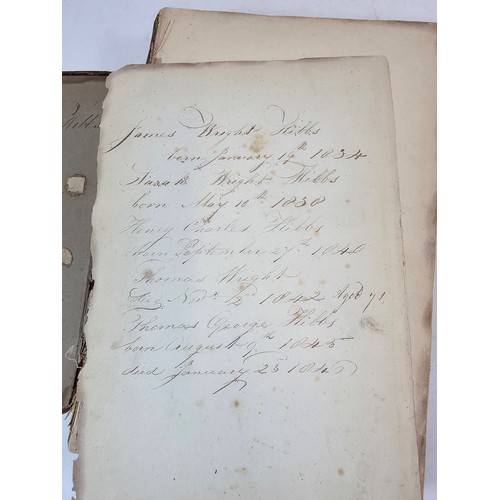 Hibbs
James Wright Hibbs
born January 14th 1834
Sarah Wright Hibbs
born May 10th 1838
Henry Charles Hibbs
born September 27th 1840
Thomas Wright
Novr 12 1842 Aged 71
Thomas George Hibbs
born August 9th 1845
died January 23 1846